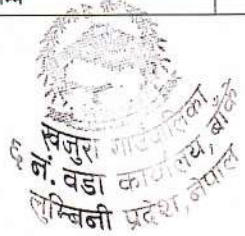 खजुरा गाउँपालिका
६ नं. वडा कार्यालय, बाँके
लुम्बिनी प्रदेश, नेपाल